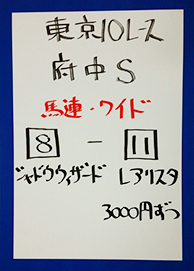 東京10レース
府中S
馬連・ワイド
8 - 11
シャドウウィザード レアリスタ
3000円ずつ